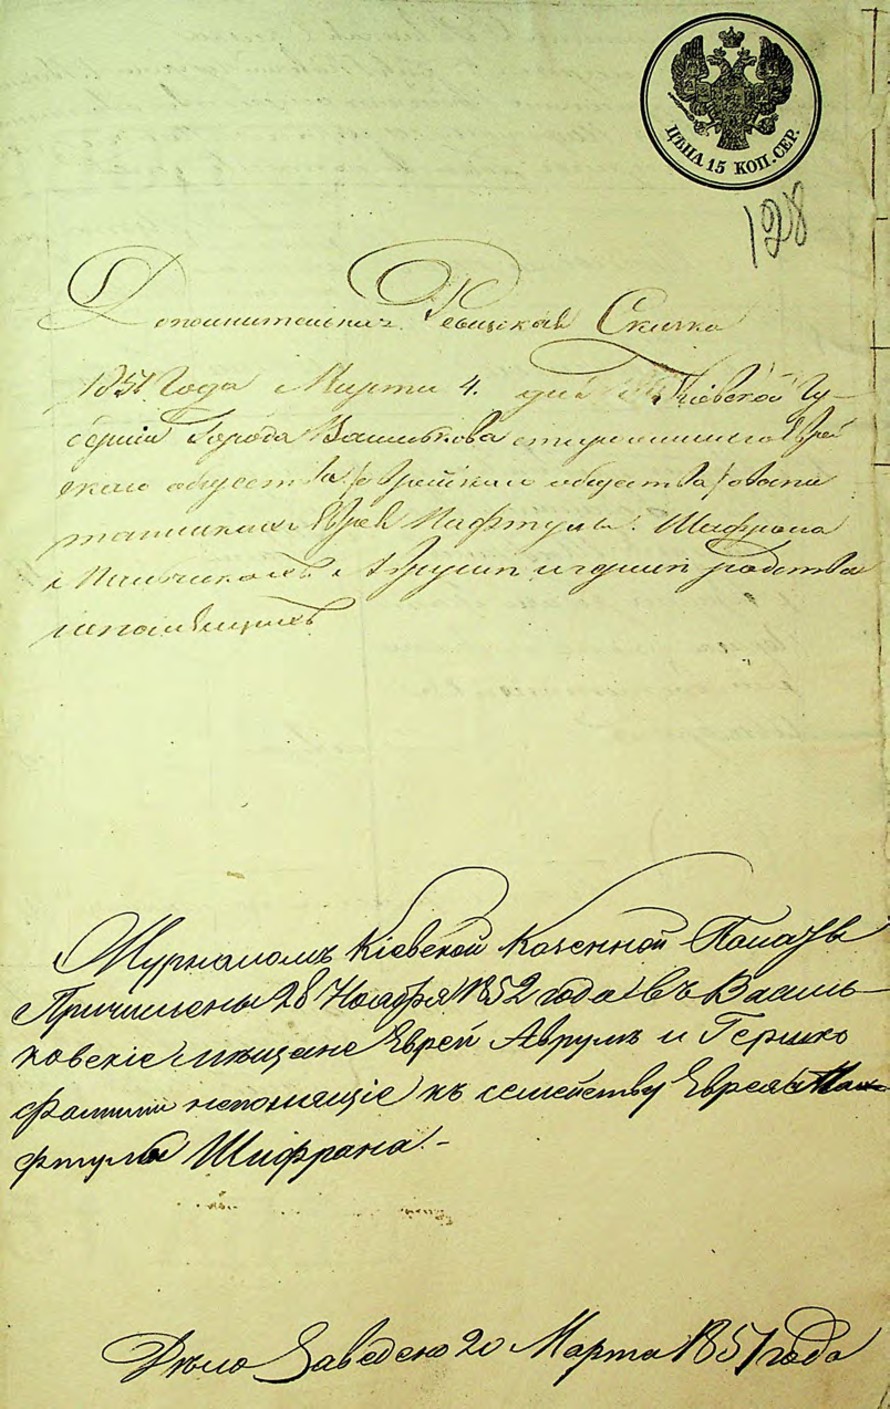 ЦѢНА 15 КОП. СЕР.
128
Дополнительная Ревизская Скаска
1851 Года Марта 4. дня Кіевской Гу-
берніи Города Василькова Еврей
скаго общества /Еврейскаго общества/
Еврея Нафтулы Шифрана
родства
непомнящихъ
Журналомъ Кіевской Казенной Палаты
Причислены 28 Ноября 1852 года въ Василь-
ковскіе мѣщане Евреи Аврумъ и Гершко
фамиліи непомнящіе къ семейству Еврея На-
фтулы Шифрана.-
Дѣло Заведено 20 Марта 1851 года